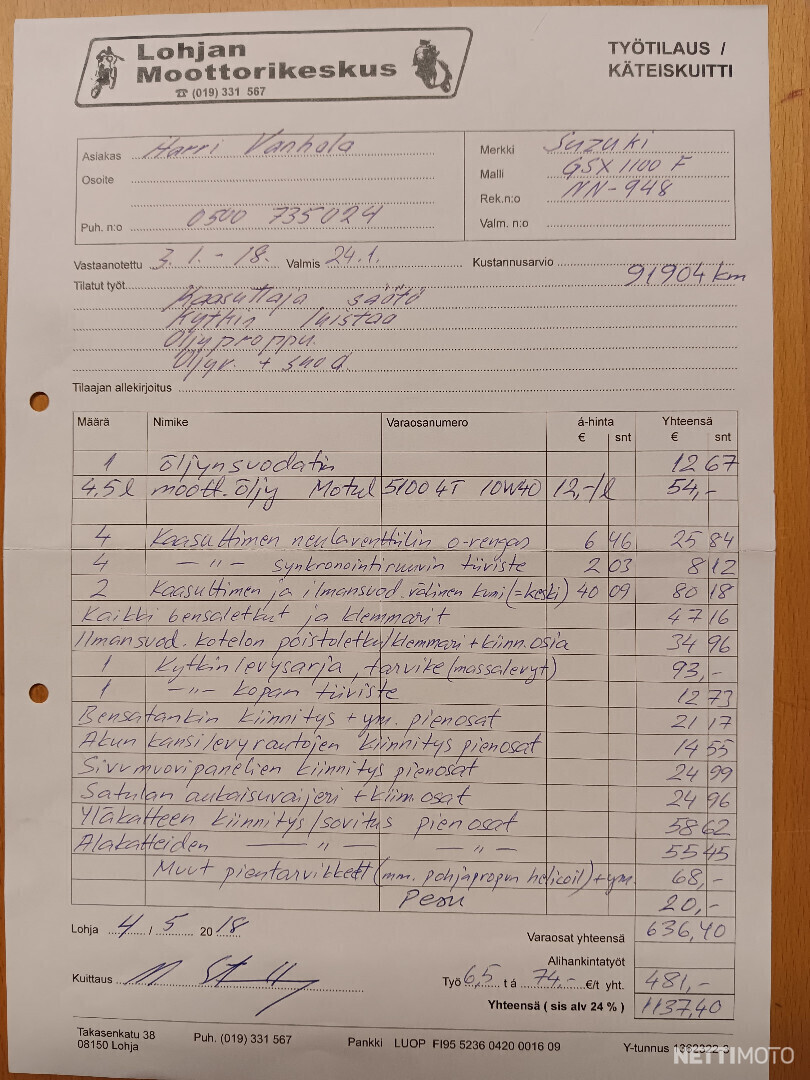 Lohjan
Moottorikeskus
☎ (019) 331 567
TYÖTILAUS /
KÄTEISKUITTI
Asiakas Harri Vanhala
Osoite
Puh. n:o 0500 735024
Merkki Suzuki
Malli GSX 1100 F
Rek.n:o NN-948
Valm. n:o
Vastaanotettu 3.1.-18. Valmis 24.1. Kustannusarvio
91904 km
Tilatut työt
Kaasuttaja säätö
Kytkin luistaa
Öljyproppu.
Öljyv. + suod
Tilaajan allekirjoitus
Määrä Nimike Varaosanumero á-hinta Yhteensä
€ snt € snt
1 öljynsuodatin 12 67
4.5 l moott.öljy Motul 5100 4T 10W40 12,-/l 54,-
4 Kaasuttimen neulaventtiilin o-rengas 6 46 25 84
4 -"- synkronointiruuvin tiiviste 2 03 8 12
2 Kaasuttimen ja ilmansuod. välinen kumi (=keski) 40 09 80 18
Kaikki bensaletkut ja klemmarit 47 16
Ilmansuod. kotelon poistoletku/klemmari + kiinn.osia 34 96
1 Kytkinlevysarja, tarvike (massalevyt) 93,-
1 -"- kopan tiiviste 12 73
Bensatankin kiinnitys + ym. pienosat 21 17
Akun kansilevyrautojen kiinnitys pienosat 14 55
Sivumuovipanelien kiinnitys pienosat 24 99
Satulan aukaisuvaijeri + kiinn.osat 24 96
Yläkatteen kiinnitys/sovitus pienosat 58 62
Alakatteiden -"- -"- 55 45
Muut pientarvikkeet (mm. pohjapropun helicoil) + ym. 68,-
Pesu 20,-
Lohja 4 / 5 20 18
Varaosat yhteensä 636,40
Alihankintatyöt
Kuittaus
Työ 6,5 t á 74,- €/t yht. 481,-
Yhteensä ( sis alv 24 % ) 1137,40
Takasenkatu 38
08150 Lohja
Puh. (019) 331 567
Pankki LUOP FI95 5236 0420 0016 09
Y-tunnus
NETTIMOTO